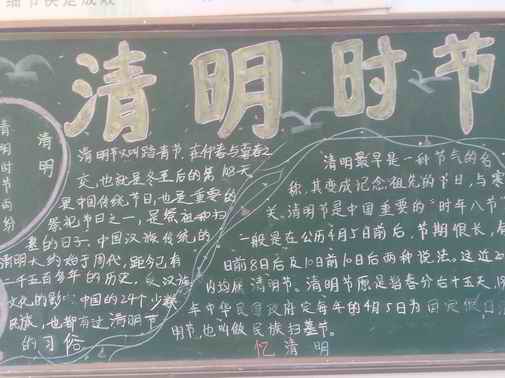 清明时节
清明
清明时节雨纷
清明节又叫踏青节,在仲春与暮春之
交,也就是冬至后的第108天
是中国传统节日,也是重要的
祭祀节日之一,是祭祖和扫
墓的日子。中国汉族传统的
清明大约始于周代,距今已有
二千五百多年的历史。受汉族
文化的影 中国的24个少数
民族,也都有过清明节
的习俗
清明最早是一种节气的名
称,其变成纪念祖先的节日,与寒
关。清明节是中国重要的“时年八节”
一般是在公历4月5日前后,节期很长,有
日前8日后及10日前10日后两种说法。这近20
内均属清明节。清明节原是指春分后十五天,19
年中华民国政府定每年的4月5日为国定假日
明节,也叫做民族扫墓节。
忆清明